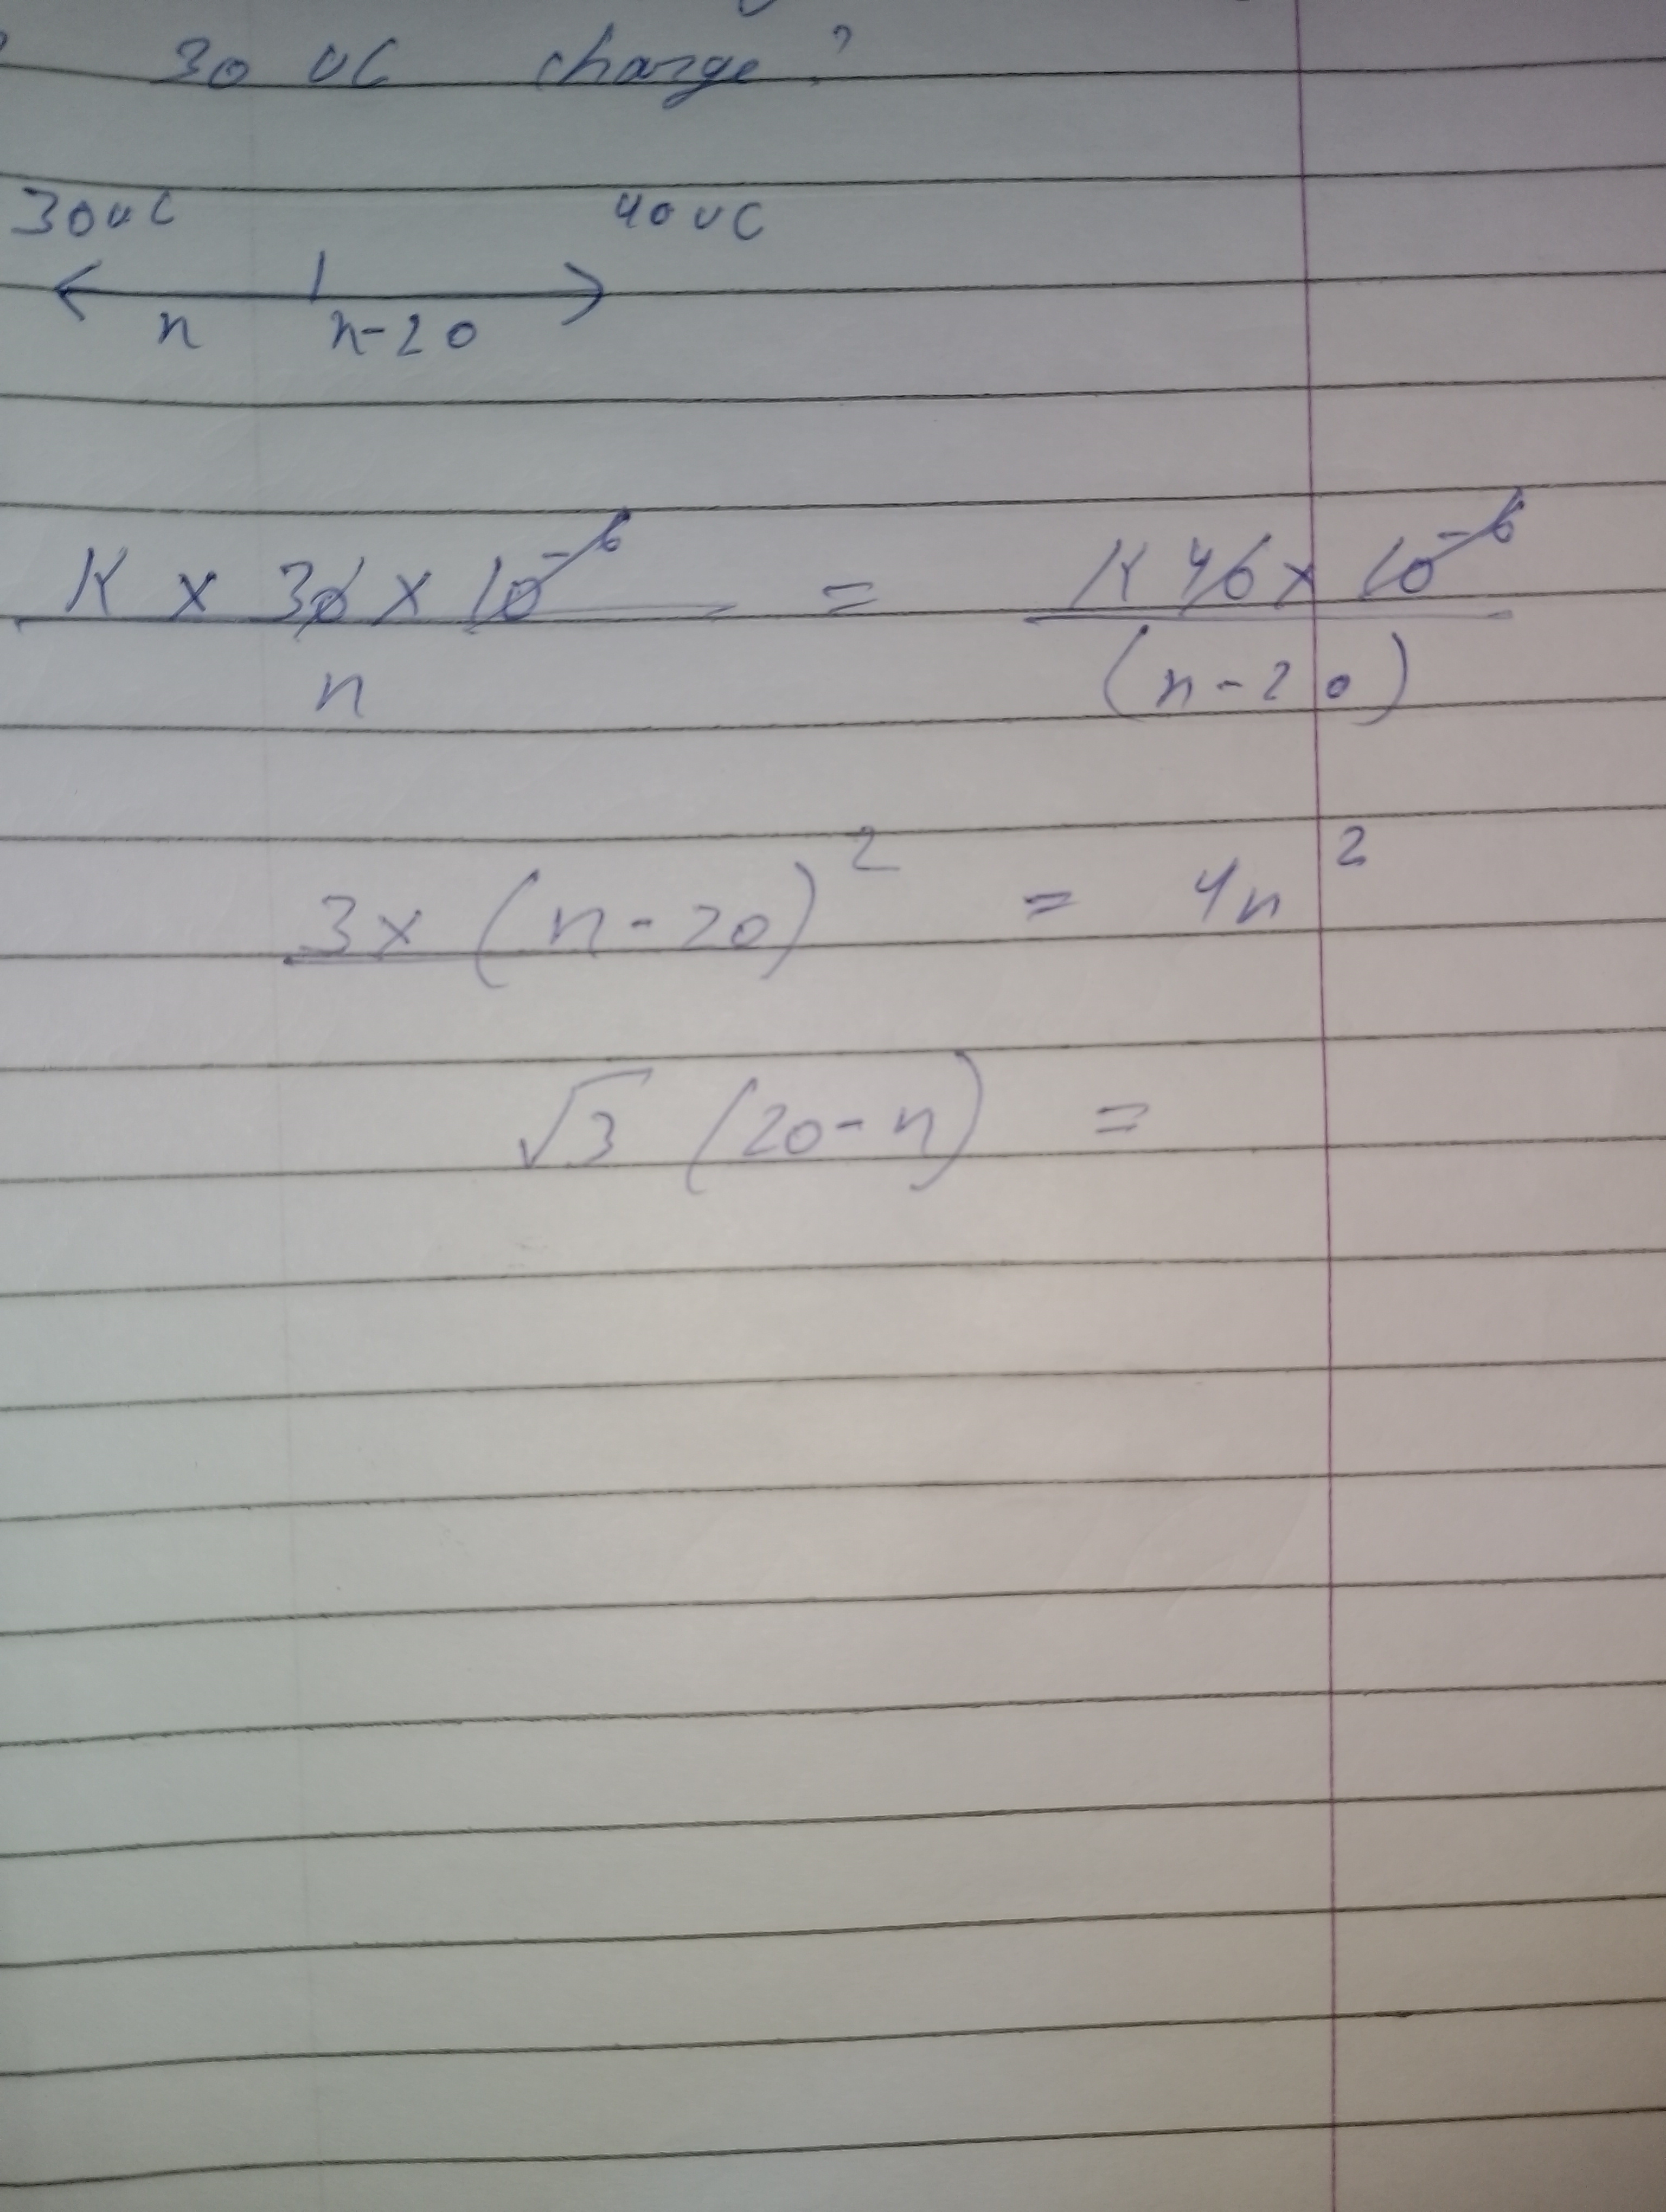 30 uC charge?
30uC 40uC
n n-20
K × 30 × 10^-6 / n = K 40 × 10^-6 / (n-20)
3× (n-20)^2 = 4n^2
√3 (20-n) =